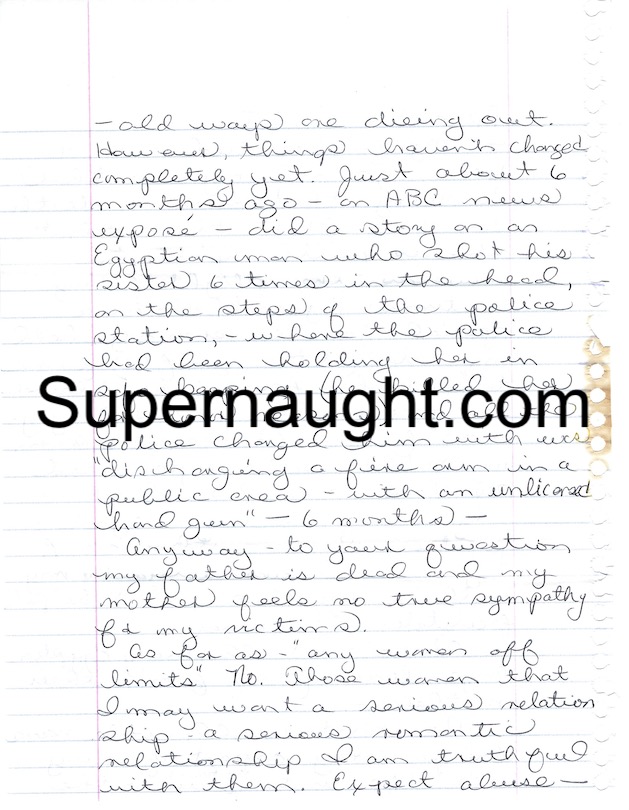 - old ways are dieing out.
However, things haven't changed
completely yet. Just about 6
months ago - an ABC news
exposé - did a story on an
Egyptian man who shot his
sister 6 times in the head,
on the steps of the police
station, - where the police
had been holding her in
safe keeping (he killed her
Supernaught.com
police charged him with was
"discharging a fire arm in a
public area - with an unlicensed
hand gun" - 6 months -
Anyway - to your question
my father is dead and my
mother feels no true sympathy
for my victims.
As far as - "any women off
limits" No. Those women that
I may want a serious relation
ship - a serious romantic
relationship I am truthful
with them. Expect abuse -